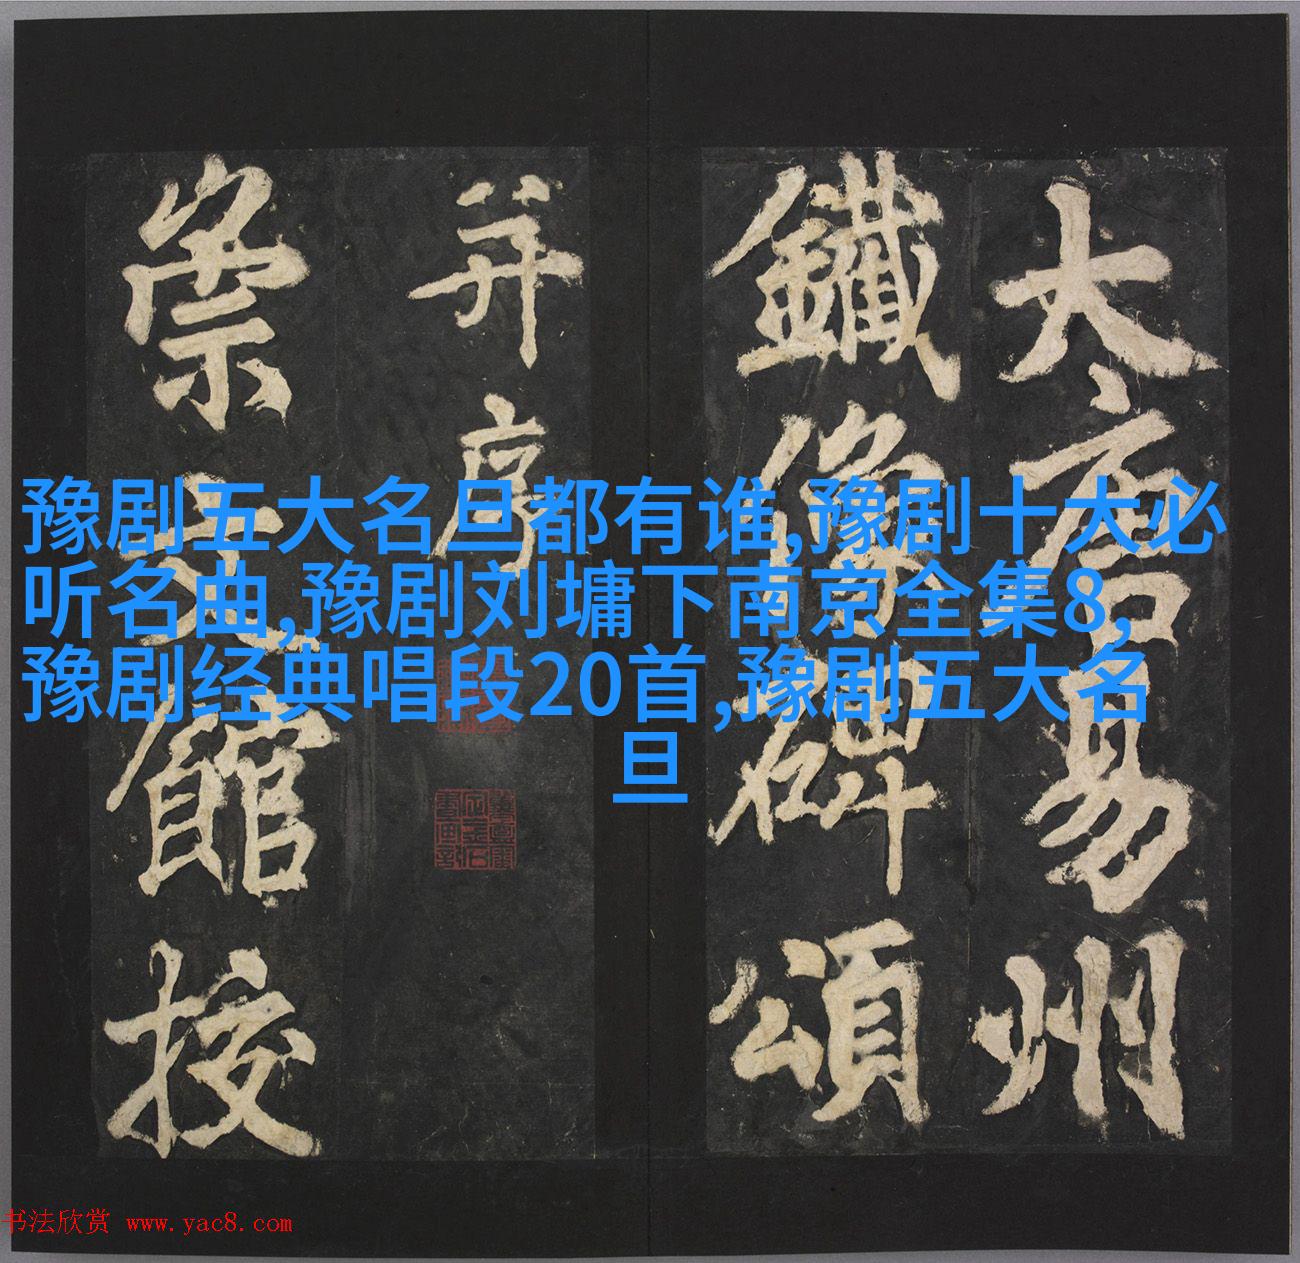 大唐易州
鐵像碑頌
并序
崇文館挍
豫剧五大名旦都有谁,豫剧十大必
听名曲,豫剧刘墉下南京全集8,
豫剧经典唱段20首,豫剧五大名
旦
书法欣赏 www.yac8.com